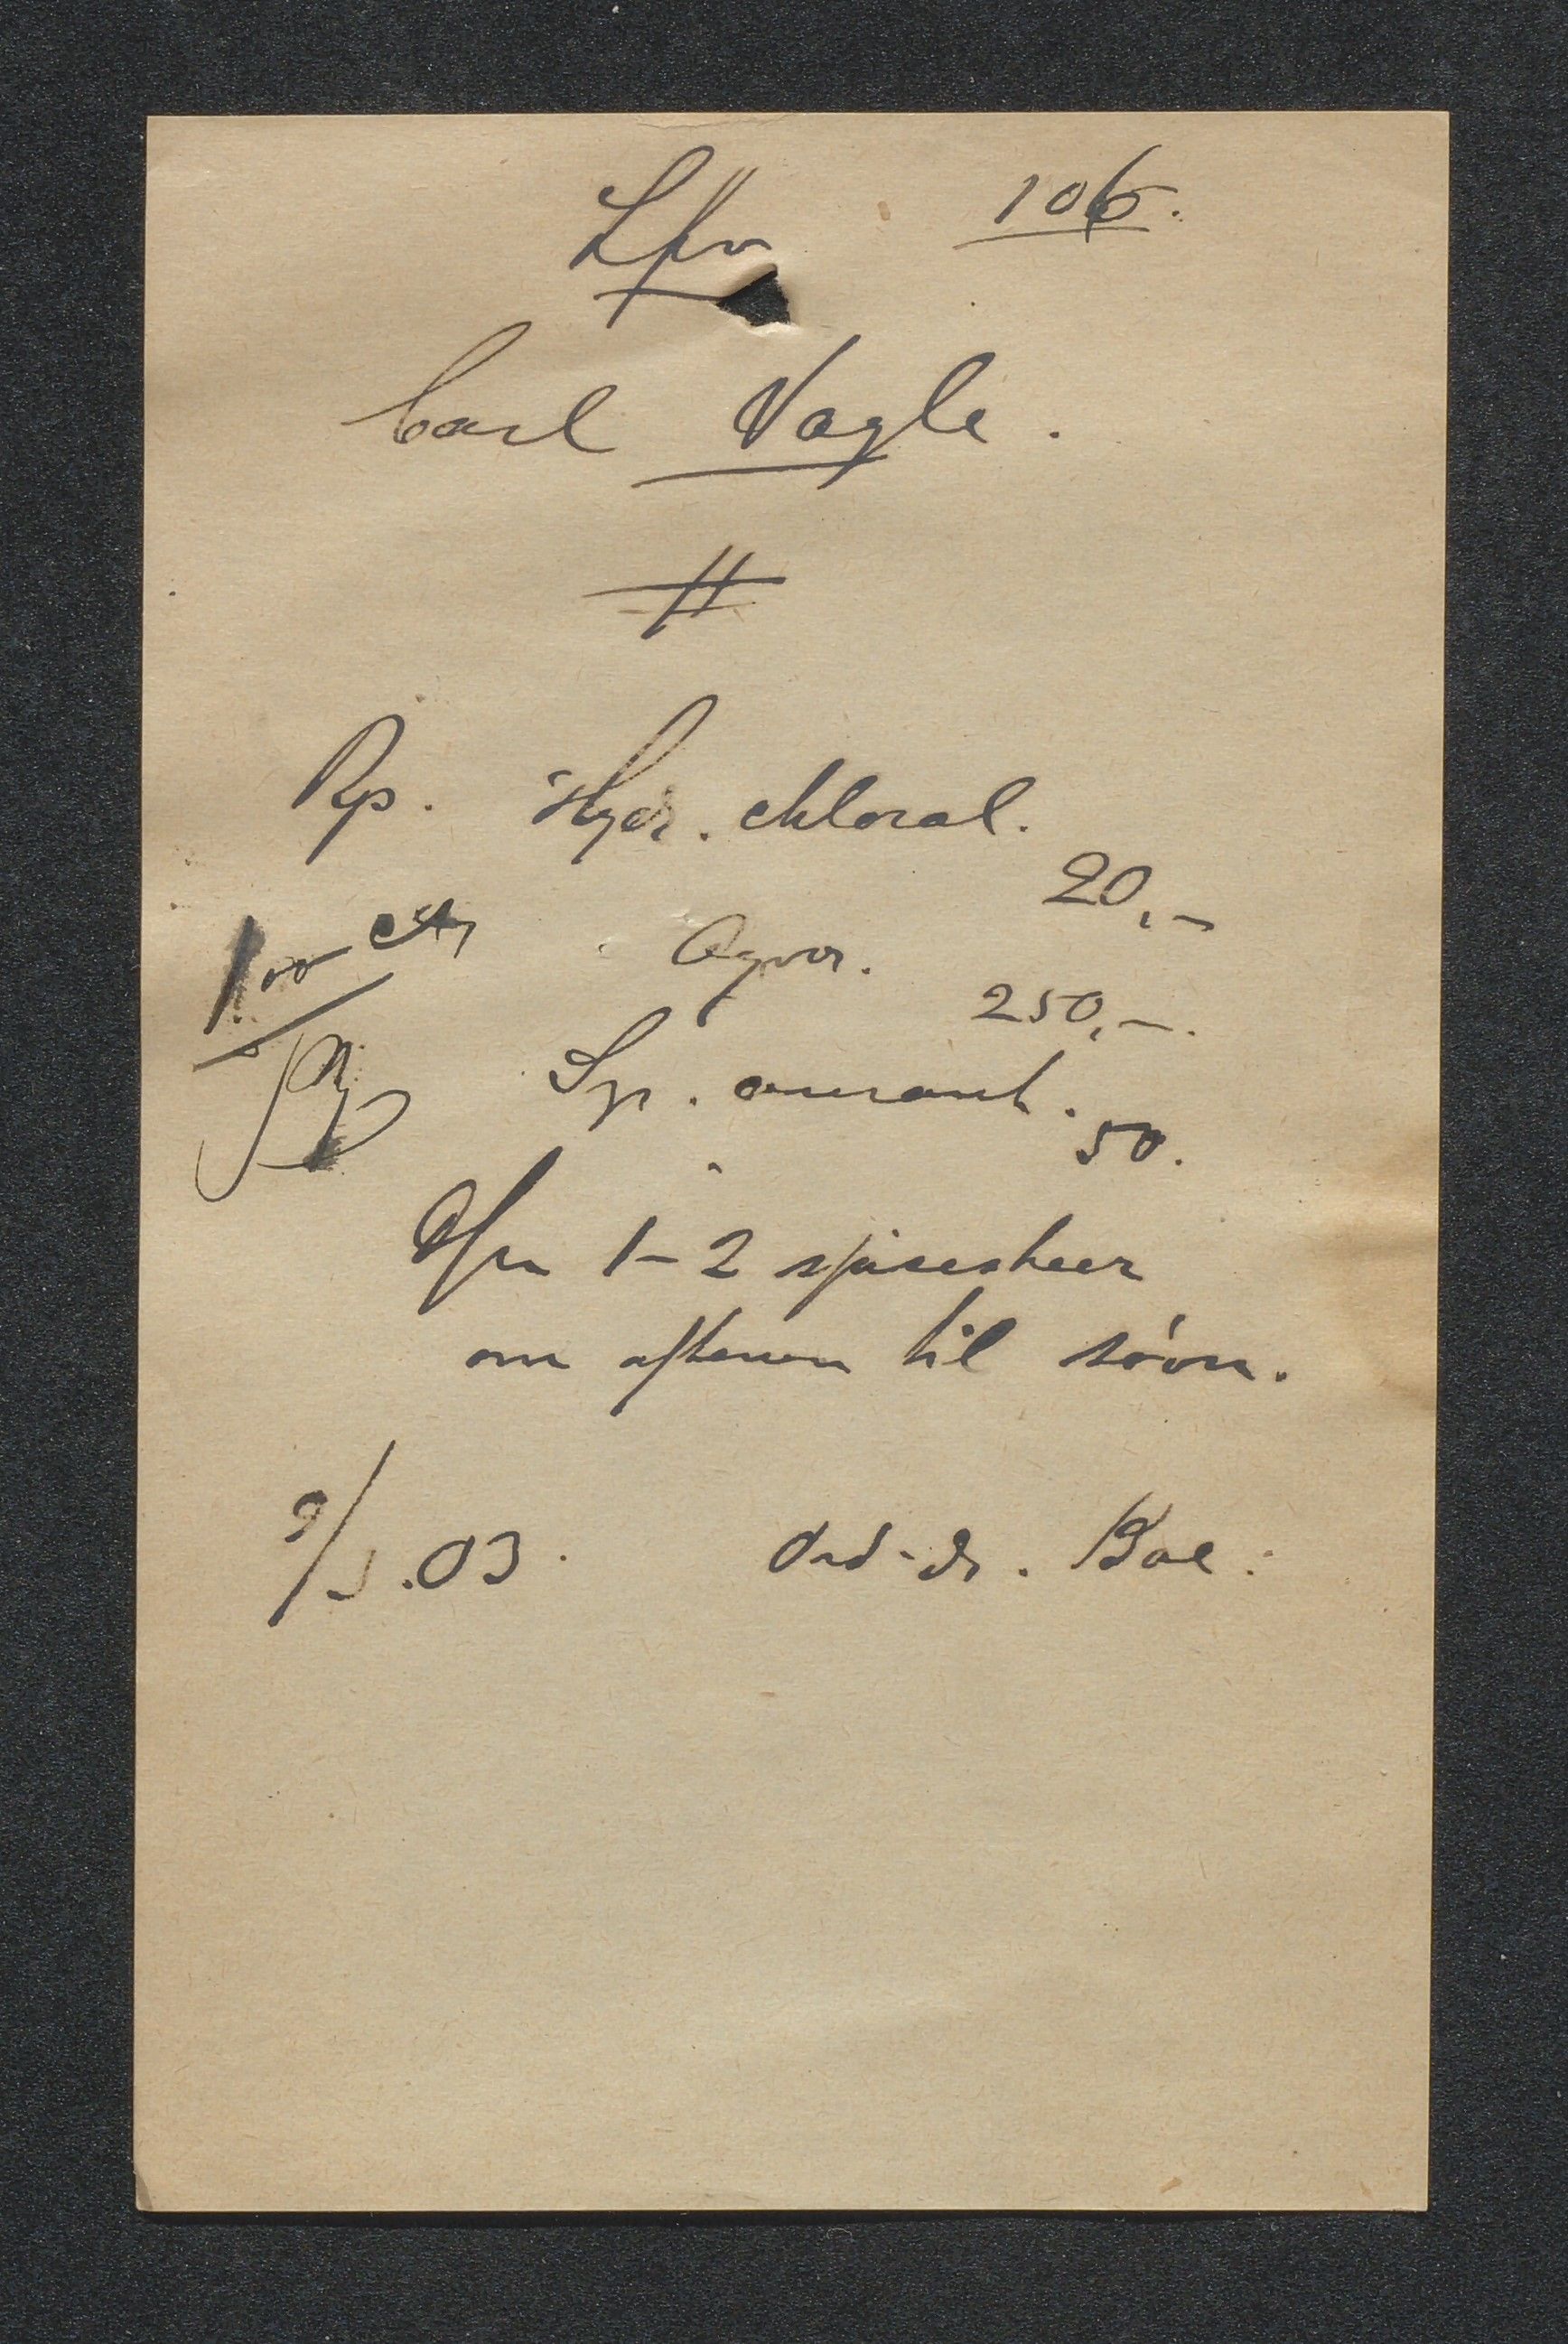 106.
Carl Vagle.
Rp. Hydr. chloral.
20,-
Aqvæ.
250,-.
Syr. aurant.
50.
1-2 spiseskeer
om aftenen til søvn.
9/3.03. Ord. dr. Boe.